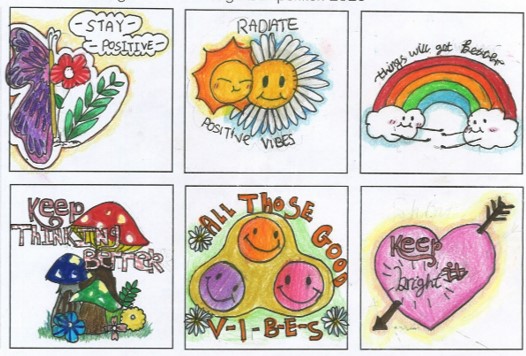 -STAY-
-POSITIVE-
RADIATE
POSITIVE VIBES
things will get Better
KEEP
THINKING
BETTER
ALL THOSE GOOD
V-I-B-E-S
KEEP
bright